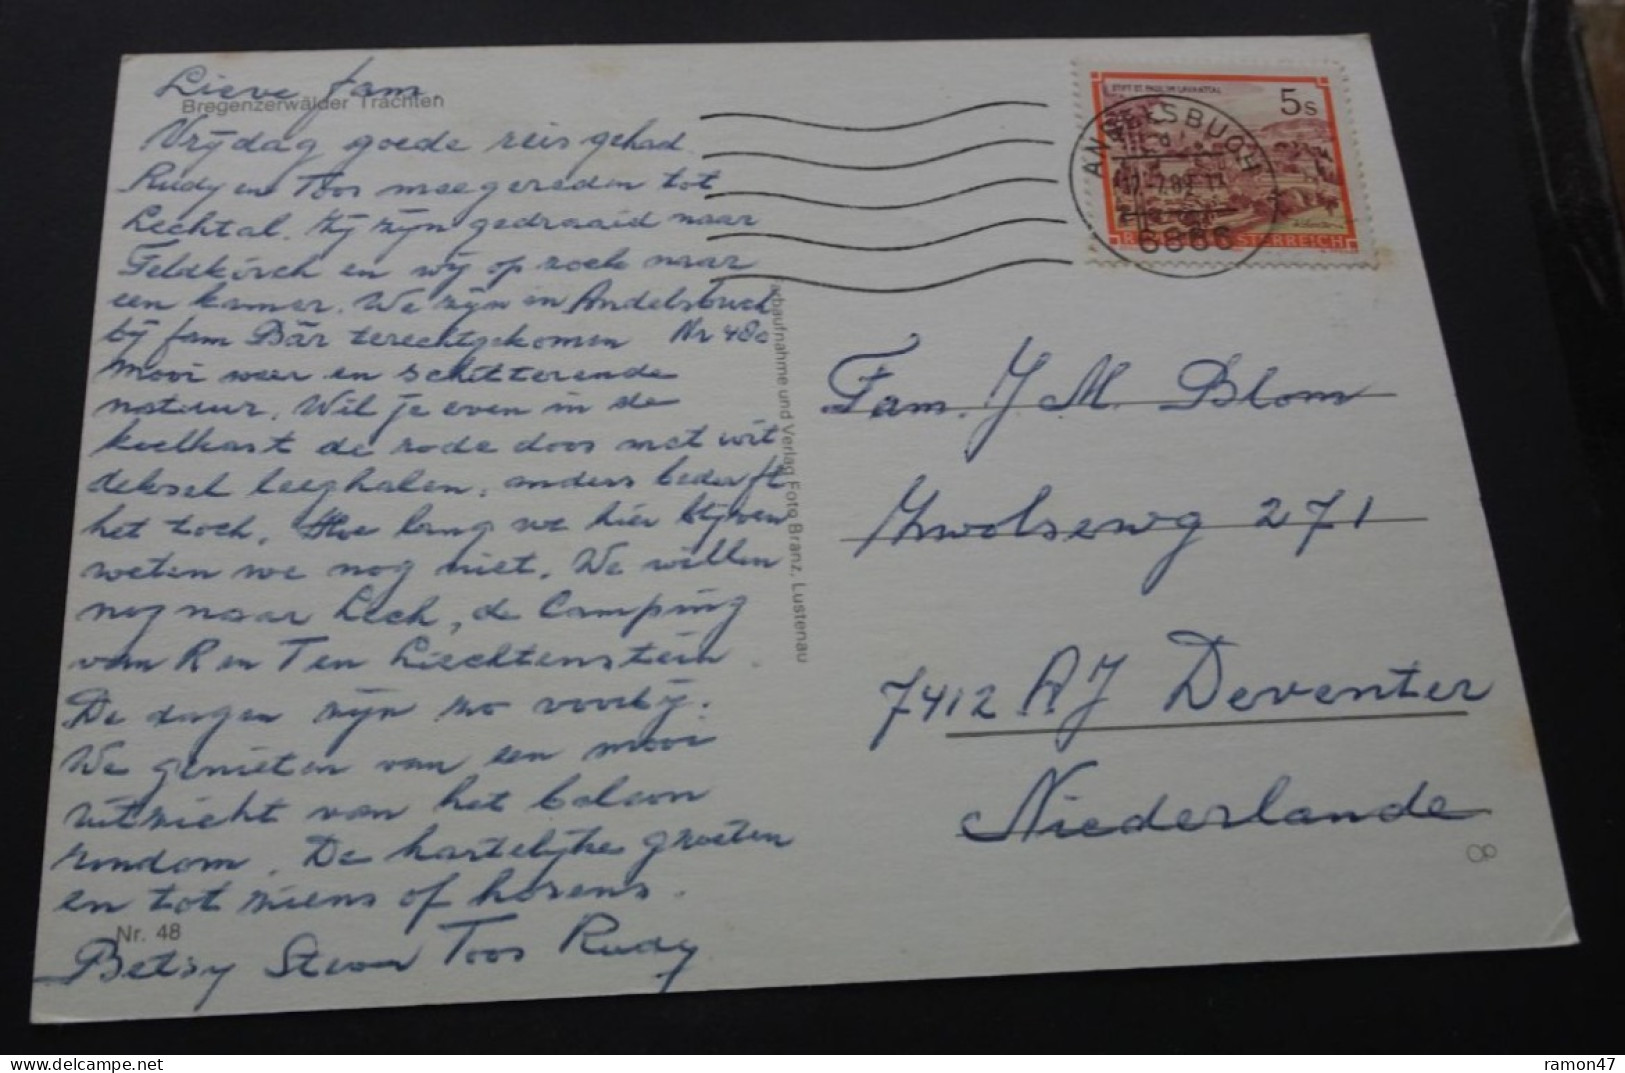 Lieve fam.
Bregenzerwälder Trachten
Vrijdag goede reis gehad.
Rudy en Toos meegereden tot
Lechtal. Zij zijn gedraaid naar
Feldkirch en wij op zoek naar
een kamer. We zijn in Andelsbuch
bij fam Bär terechtgekomen Nr 480
Mooi weer en schitterende
natuur. Wil je even in de
koelkast de rode doos met wit
deksel leeghalen, anders bederft
het toch. Hoe lang we hier blijven
weten we nog niet. We willen
nog naar Lech, de Camping
van R en T en Liechtenstein
De dagen zijn zo voorbij.
We genieten van een mooi
uitzicht van het balcon
rondom. De hartelijke groeten
en tot ziens of horens.
Nr. 48
Betsy Toos Rudy
Farbaufnahme und Verlag Foto Branz, Lustenau
STIFT ST. PAUL IM LAVANTTAL
5s
ANDELSBUCH
6866
ÖSTERREICH
Fam. J. M. Blom
Zwolseweg 271
7412 AJ Deventer
Niederlande
ramon47